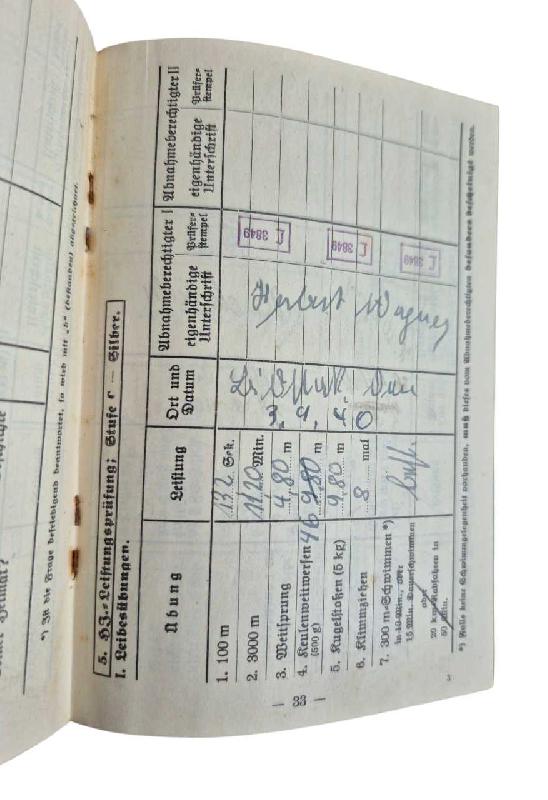 *) Ist die Frage befriedigend beantwortet, so wird mit „b“ (bestanden) abgezeichnet.
5. HJ.-Leistungsprüfung; Stufe C — Silber.
I. Leibesübungen.
Übung
Leistung
Ort und Datum
Abnahmeberechtigter I
eigenhändige Unterschrift
Prüfer-stempel
Abnahmeberechtigter II
eigenhändige Unterschrift
Prüfer-stempel
1. 100 m 13,2 Sek.
2. 3000 m 11,20 Min.
3. Weitsprung 4,80 m
4. Keulenweitwerfen (500 g) 46 m
5. Kugelstoßen (5 kg) 9,80 m
6. Klimmziehen 8 mal
7. 300 m-Schwimmen *)
in 10 Min., oder
15 Min. Dauerschwimmen
oder
20 km Radfahren in
50 Min.
den
3. 9. 40
Herbert Wagner
L 3849
L 3849
L 3849
*) Falls keine Schwimmgelegenheit vorhanden, muß dieses vom Abnahmeberechtigten besonders bescheinigt werden.
— 33 —